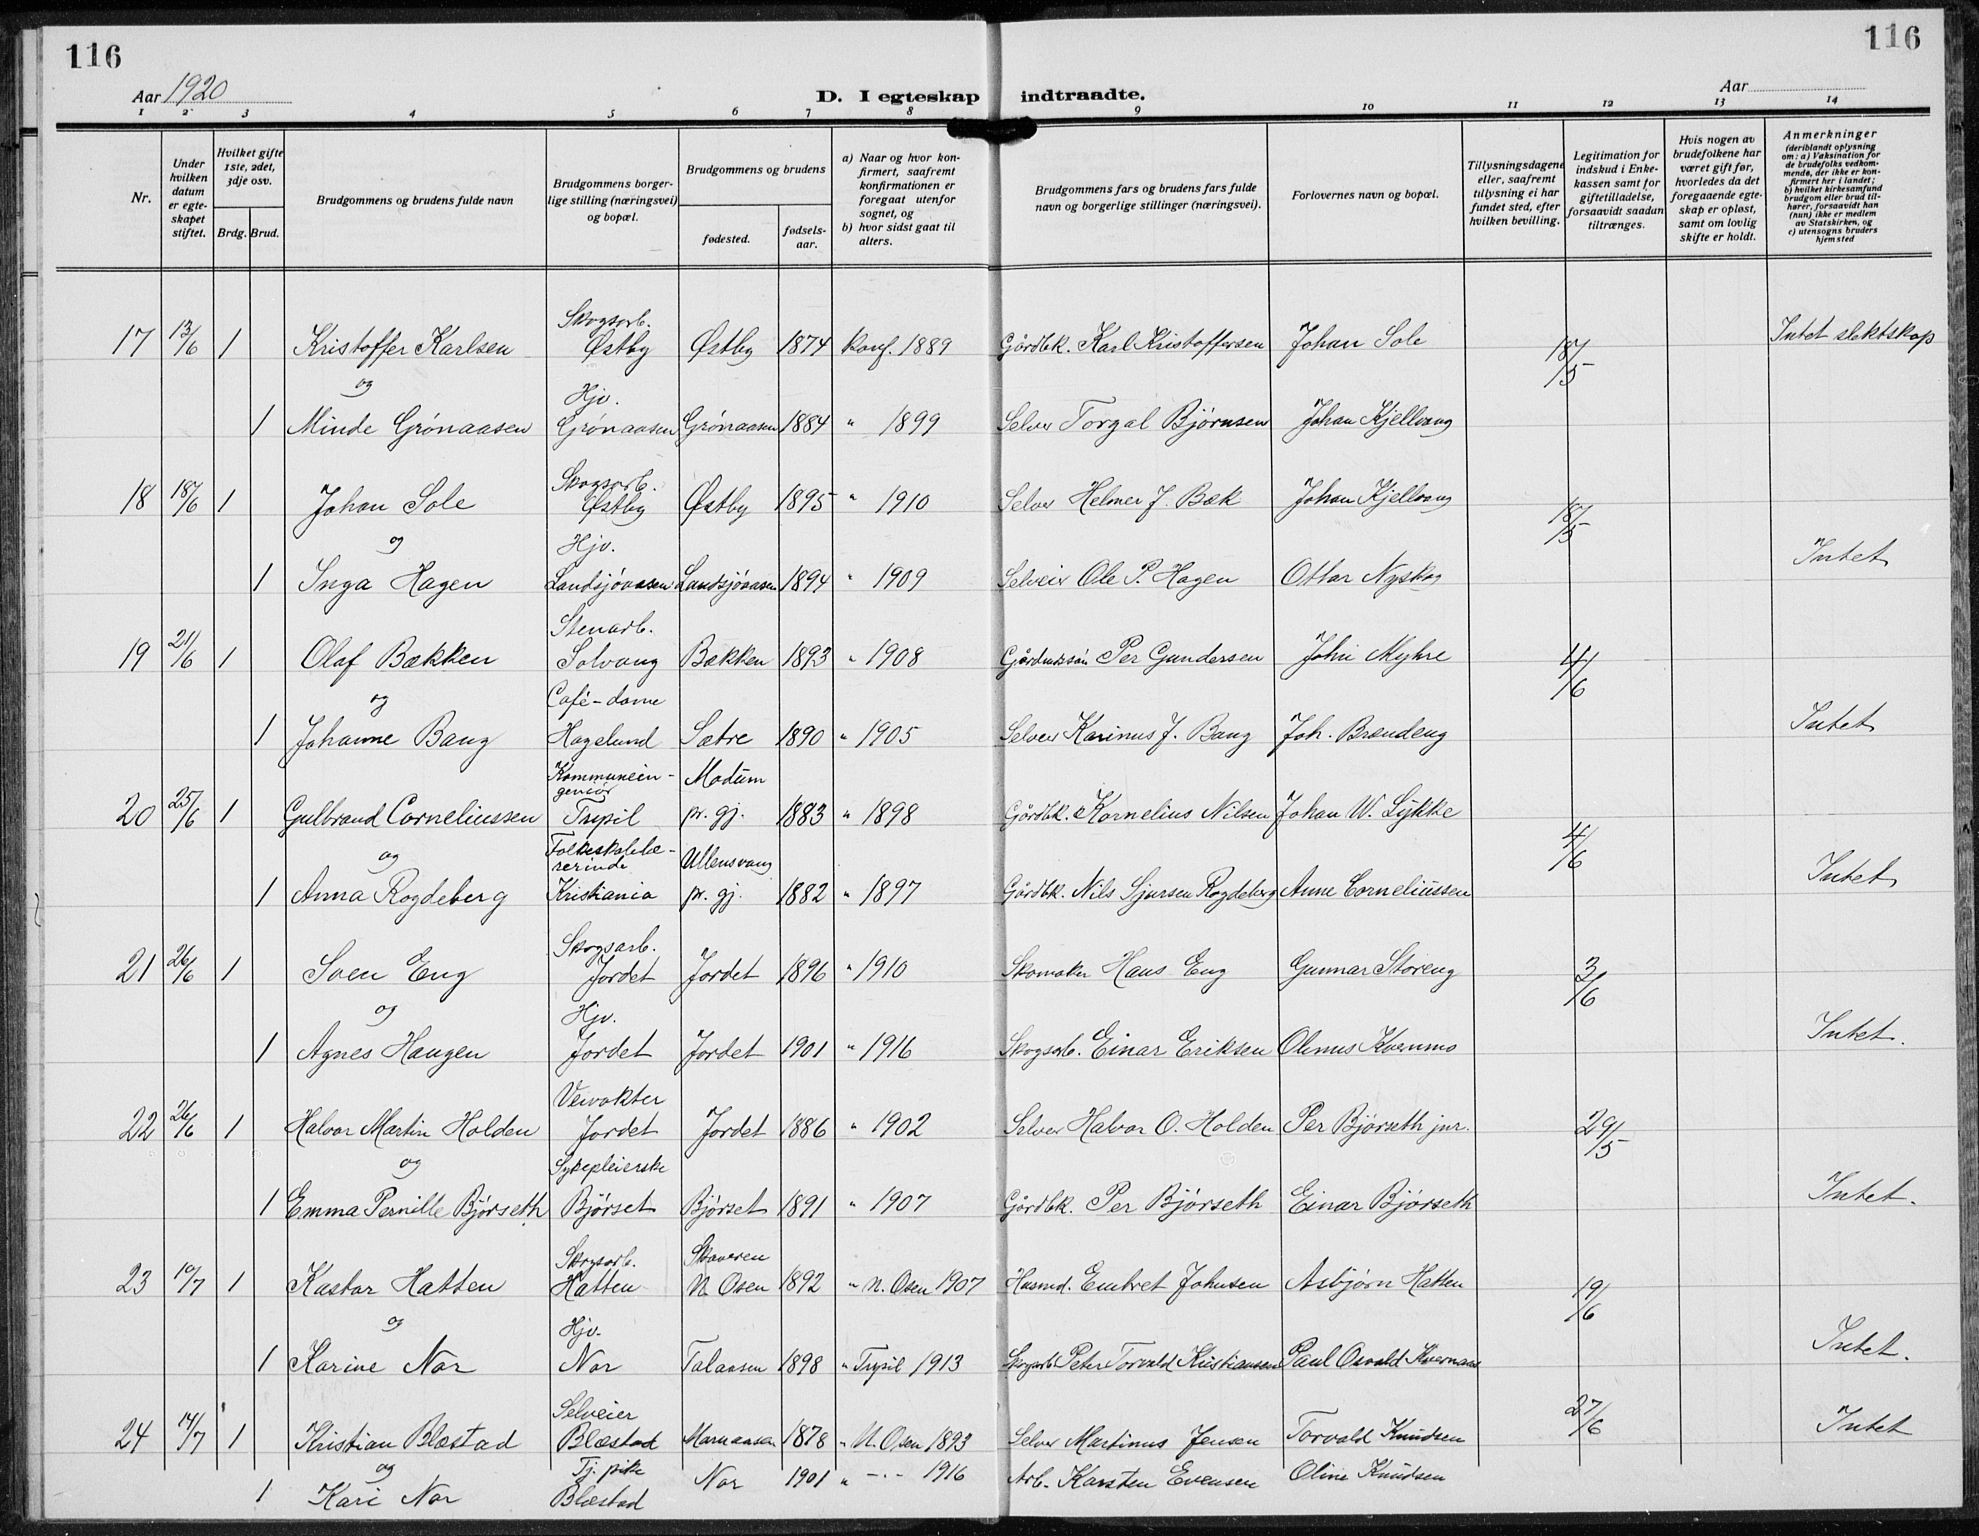 116
116
Aar 1920
D. I egteskap indtraadte.
Aar
1 2 3 4 5 6 7 8 9 10 11 12 13 14
Nr.
Under hvilken datum er egteskapet stiftet.
Hvilket gifte 1ste, 2det, 3dje osv.
Brdg. Brud.
Brudgommens og brudens fulde navn
Brudgommens borgerlige stilling (næringsvei) og bopæl.
Brudgommens og brudens
fødested.
fødselsaar.
a) Naar og hvor konfirmert, saafremt konfirmationen er foregaat utenfor sognet, og
b) hvor sidst gaat til alters.
Brudgommens fars og brudens fars fulde navn og borgerlige stillinger (næringsvei).
Forlovernes navn og bopæl.
Tillysningsdagene eller, saafremt tillysning ei har fundet sted, efter hvilken bevilling.
Legitimation for indskud i Enkekassen samt for giftetilladelse, forsaavidt saadan tiltrænges.
Hvis nogen av brudefolkene har været gift før, hvorledes da det foregaaende egteskap er opløst, samt om lovlig skifte er holdt.
Anmerkninger (deriblandt oplysning om: a) Vaksination for de brudefolks vedkommende, der ikke er konfirmert her i landet; b) hvilket kirkesamfund brudgom eller brud tilhører, forsaavidt han (hun) ikke er medlem av Statskirken, og c) utensogns bruders hjemsted
17 13/6 1 Kristoffer Karlsen Skogsarb. Østby Østby 1874 Konf. 1889 Gårdbk. Karl Kristoffersen Johan Sole 18/5 Intet slektskap
og
1 Minde Grønaasen Hjv. Grønaasen Grønaasen 1884 " 1899 Selvei Torgal Bjørnsen Johan Kjellvang
18 18/6 1 Johan Sole Skogsarb. Østby Østby 1895 " 1910 Selvei Helmer J. Bæk Johan Kjellvang 18/5
og
1 Inga Hagen Hjv. Landsjöaasen Landsjöaasen 1894 " 1909 Selveir Ole P. Hagen Ottar Nyskog Intet
19 21/6 1 Olaf Bækken Stenarb. Solvang Bækken 1893 " 1908 Per Gundersen John Myhre 4/6
og
1 Johanne Bang Café-dame Hagelund Sætre 1890 " 1905 Selvei Karinus J. Bang Joh. Brændeng Intet
20 25/6 1 Gulbrand Corneliussen Kommuneingeniör Trysil Modum pr. gj. 1883 " 1898 Gårdbk. Kornelius Nilsen Johan W. Lykke 4/6
og
1 Anna Rogdeberg Folkeskolelærerinde Kristiania Ullensvang pr. gj. 1882 " 1897 Gårdbk. Nils Sjursen Rogdeberg Anne Corneliussen Intet
21 26/6 1 Sven Eng Skogsarb. Jordet Jordet 1896 " 1910 Skomaker Hans Eng Gunnar Støreng 3/6
og
1 Agnes Haugen Hjv. Jordet Jordet 1901 " 1916 Skogsarb. Einar Eriksen Olemus Kvernmo Intet.
22 26/6 1 Halvor Martin Holden Veivokter Jordet Jordet 1886 " 1902 Selvei Halvor O. Holden Per Bjørseth jnr. 29/5
og
1 Emma Pernille Bjørseth Sykepleierske Bjørset Bjørset 1891 " 1907 Gårdbk. Per Bjørseth Einar Bjørseth Intet.
23 10/7 1 Kastar Hatten Skogsarb. Hatten Skaaren N. Osen 1892 " N. Osen 1907 Husmd. Embret Johnsen Asbjørn Hatten 19/6
og
1 Karine Nor Hjv. Nor Talaasen 1898 " Trysil 1913 Skogsarb Peter Torvald Kristiansen Paul Osvald Kvernaas Intet.
24 14/7 1 Kristian Blæstad Selveier Blæstad 1878 " N. Osen 1893 Selvei Martinus Jensen Torvald Knudsen 27/6 Intet
og
1 Kari Nor Tj. pike Blæstad Nor 1901 " -"- 1916 Arb. Karsten Evensen Oline Knudsen